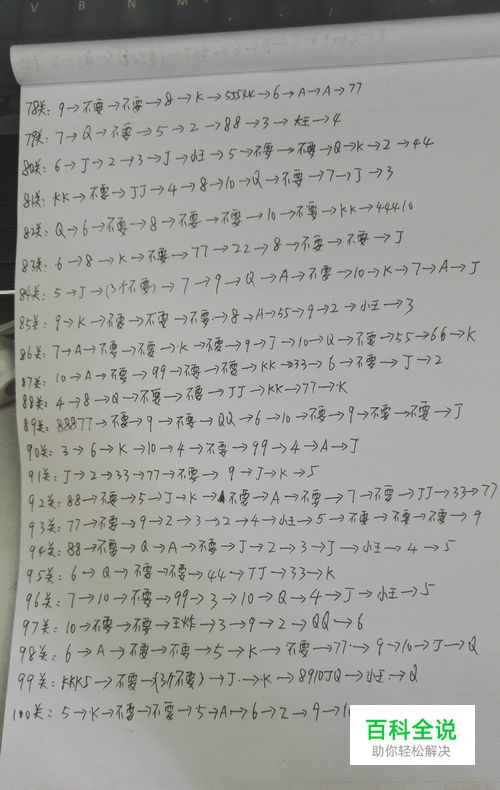 V B N M
78关: 9→不要→不要→8→K→55544→6→A→A→77
79关: 7→Q→不要→5→2→88→3→大王→4
80关: 6→J→2→3→J→小王→5→不要→不要→Q→K→2→44
81关: KK→不要→JJ→4→8→10→Q→不要→7→J→3
82关: Q→6→不要→8→不要→不要→10→不要→KK→44410
83关: 6→8→K→不要→77→22→8→不要→不要→J
84关: 5→J→(3个不要)→7→9→Q→A→不要→10→K→7→A→J
85关: 9→K→不要→不要→不要→8→A→55→9→2→小王→3
86关: 7→A→不要→不要→K→不要→9→J→10→Q→不要→55→66→K
87关: 10→A→不要→99→不要→不要→KK→33→6→不要→J→2
88关: 4→8→Q→不要→不要→JJ→KK→77→K
89关: 88877→不要→9→不要→QQ→6→10→不要→9→不要→不要→J
90关: 3→6→K→10→4→不要→99→4→A→J
91关: J→2→33→77→不要→9→J→K→5
92关: 88→不要→5→J→K→不要→A→不要→7→不要→JJ→33→77
93关: 77→不要→9→2→3→2→4→小王→5→不要→不要→不要→9
94关: 88→不要→Q→A→不要→J→2→3→J→小王→4→5
95关: 6→Q→不要→不要→44→JJ→33→K
96关: 7→10→不要→99→3→10→Q→4→J→小王→5
97关: 10→不要→不要→王炸→3→9→2→QQ→6
98关: 6→A→不要→不要→5→K→不要→77→9→10→J→Q
99关: KKK5→不要→(3个不要)→J→K→8910JQ→小王→Q
100关: 5→K→不要→不要→5→A→6→2→9→
百科全说
助你轻松解决